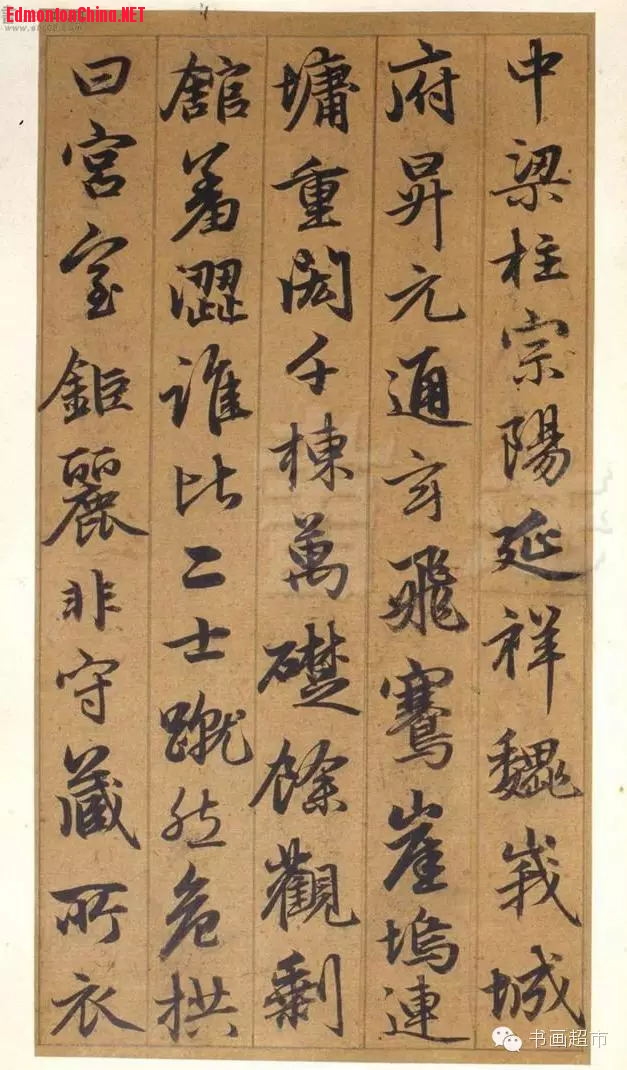 EdmontonChina.NET
中梁柱宗陽延祥魏峩城
府昇元通玄飛騫崖塢連
墉重閎千棟萬礎餘觀剩
館羞澀誰比二士蹴然危拱
曰宮室鉅麗非守蔵所衣
书画超市